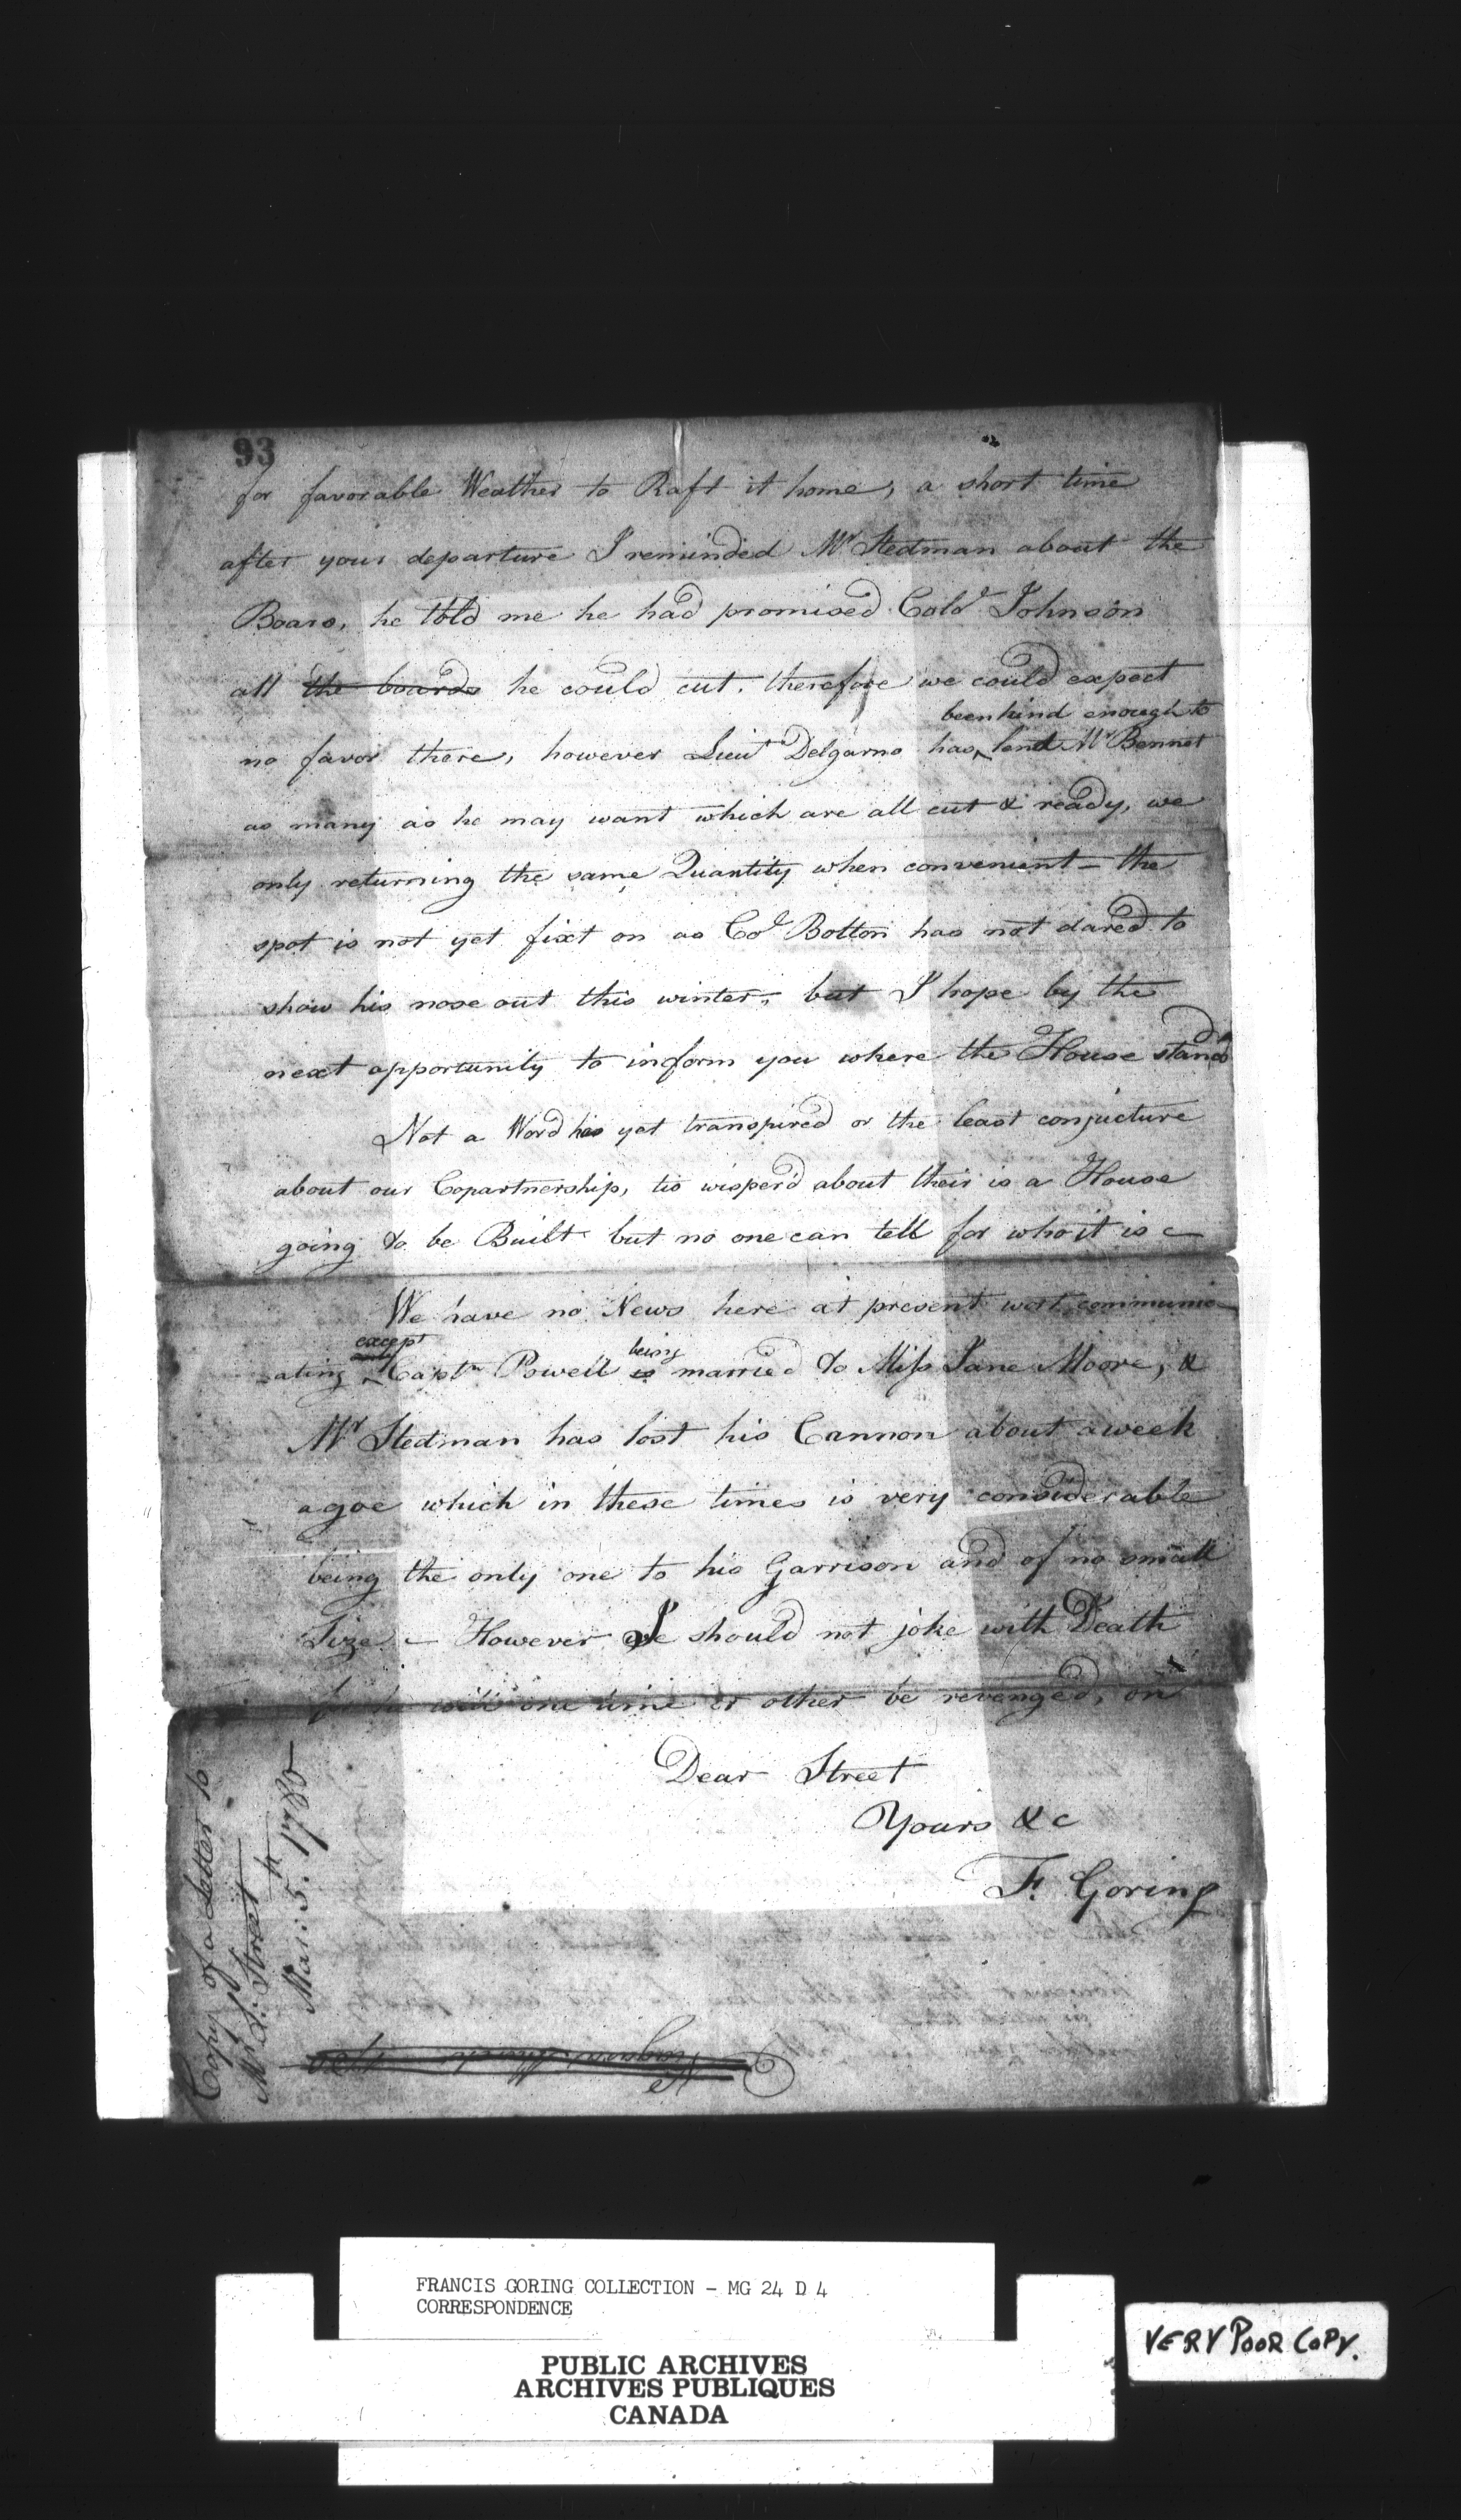 93
for favorable Weather to Raft it home, a short time
after your departure I reminded Mr Stedman about the
Boars, he told me he had promised Colo Johnson
all the boards he could cut, therefore we could expect
been kind enough to
no favor there, however Lieut Delgarno has lend Mr Bennet
as many as he may want which are all cut & ready, we
only returning the same Quantity when convenient – the
spot is not yet fixt on as Col Bolton has not dared to
show his nose out this winter, but I hope by the
next opportunity to inform you where the House stands
Not a Word has yet transpired or the least conjucture
about our Copartnership, tis wisper'd about their is a House
going to be Built but no one can tell for who it is –
We have no News here at present wort communic
except being
-ating only Captn Powell is married to Miss Jane Moore, &
Mr Stedman has lost his Cannon about a week
agoe which in these times is very considerable
being the only one to his Garrison and of no small
Size – However I should not joke with Death
for he will one time or other be revenged, on
Dear Street
Yours &c
F. Goring
Copy of a Letter to
Mr S: Street
Mar: 5th 1780
FRANCIS GORING COLLECTION - MG 24 D 4
CORRESPONDENCE
PUBLIC ARCHIVES
ARCHIVES PUBLIQUES
CANADA
VERY POOR COPY.